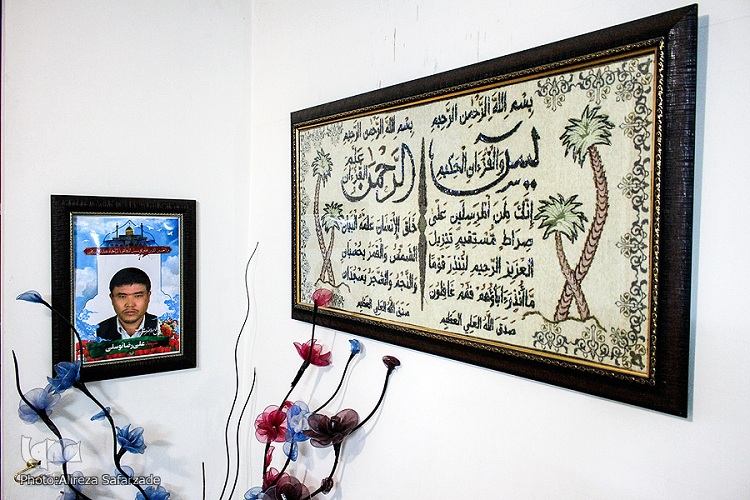 بسم الله الرحمن الرحيم
يس والقرءان الحكيم
إنك لمن المرسلين على
صراط مستقيم تنزيل
العزيز الرحيم لتنذر قوما
ما أنذر ءاباؤهم فهم غافلون
صدق الله العلي العظيم
بسم الله الرحمن الرحيم
الرحمن علم القرءان
خلق الإنسان علمه البيان
الشمس والقمر بحسبان
والنجم والشجر يسجدان
صدق الله العلي العظيم
علی رضا توسلی
ایکنا
Photo:Alireza Safarzade